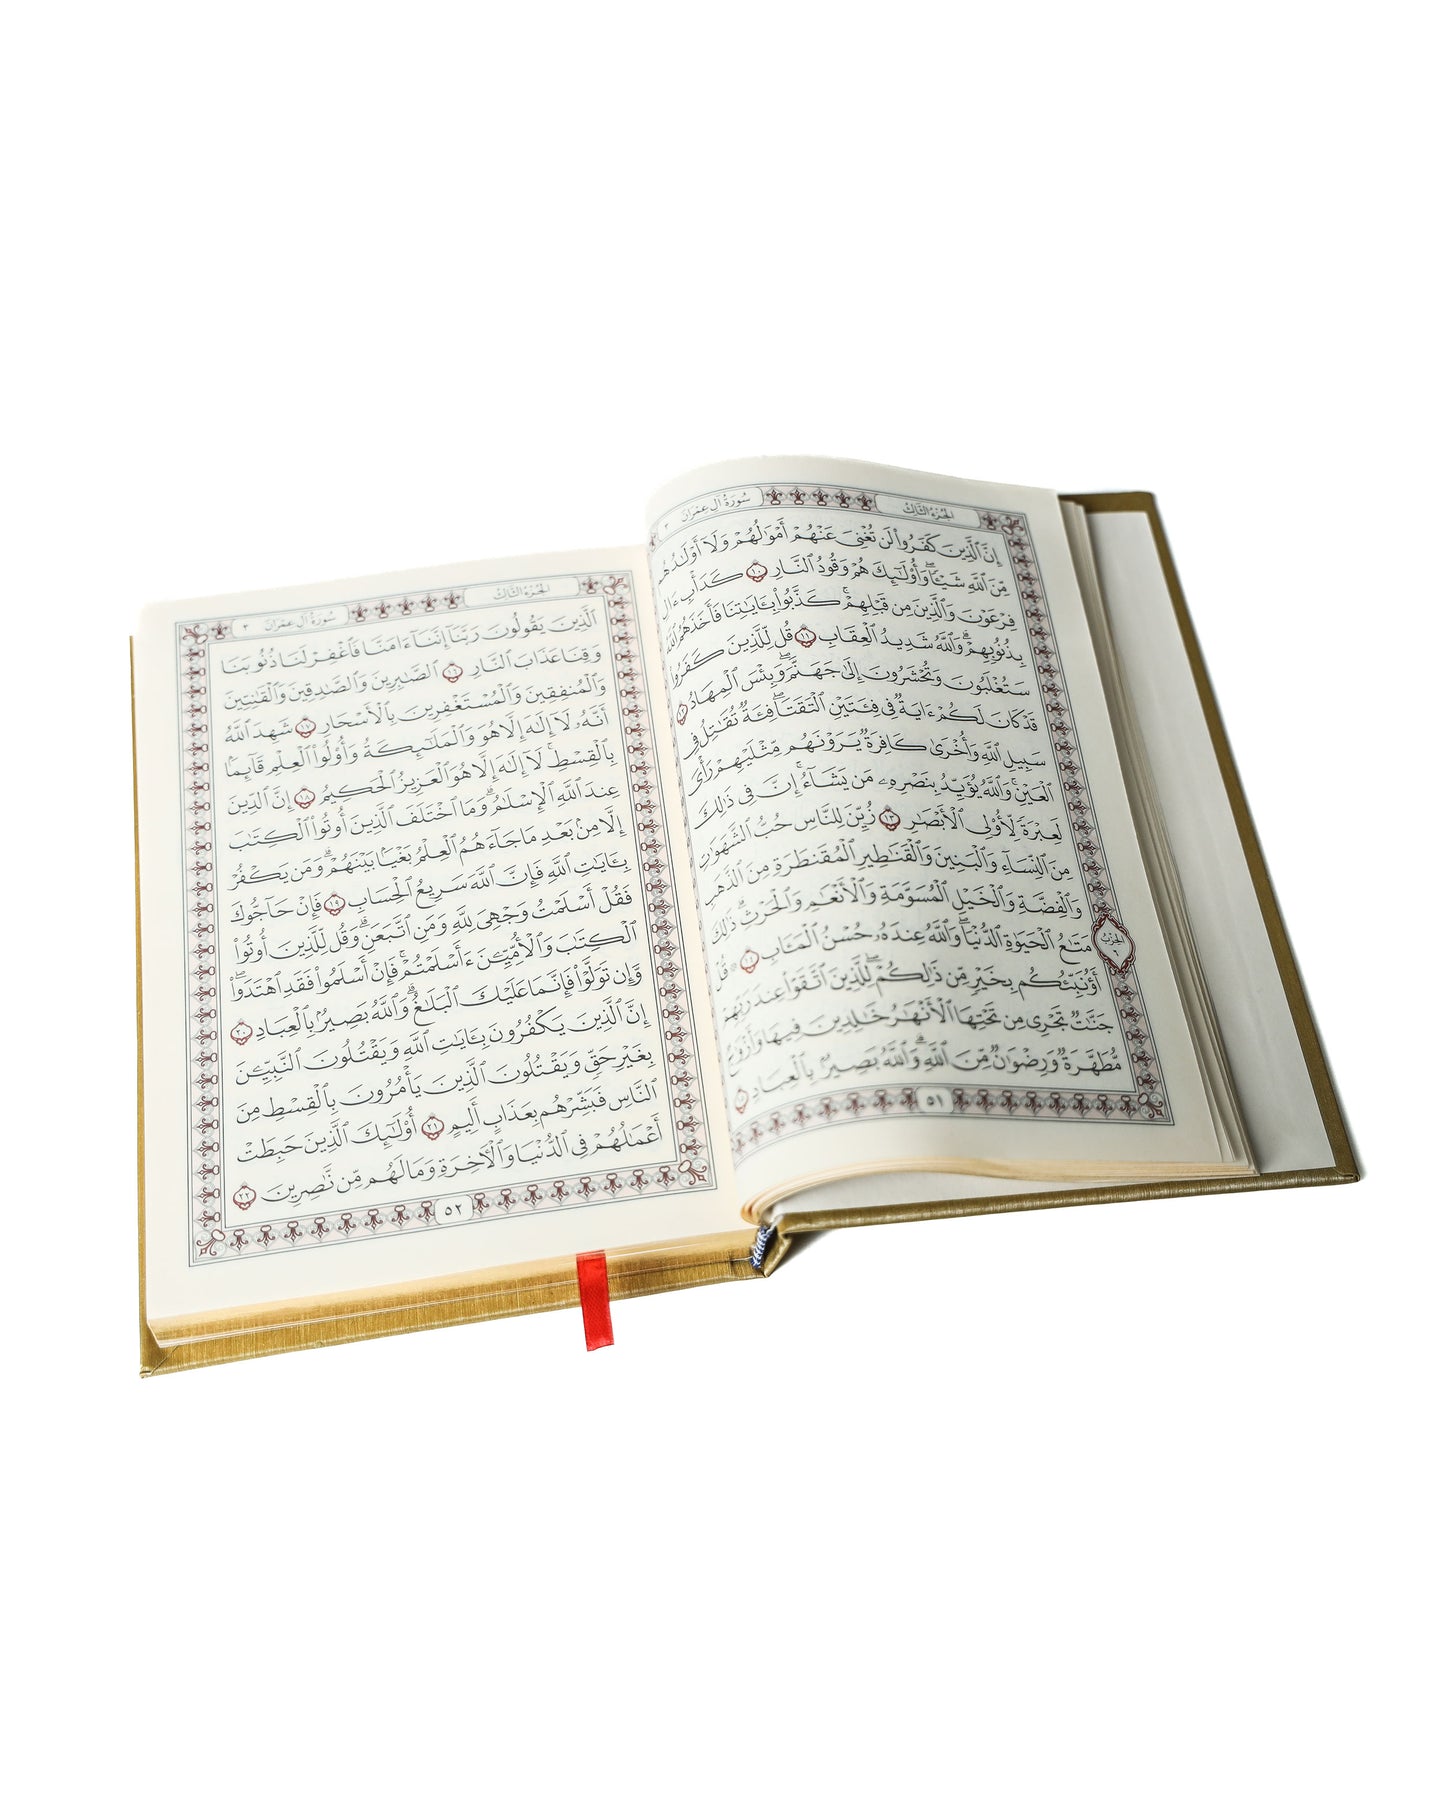 الجزء الثالث
سورة آل عمران ٣
إِنَّ ٱلَّذِينَ كَفَرُوا۟ لَن تُغْنِىَ عَنْهُمْ أَمْوَٰلُهُمْ وَلَآ أَوْلَـٰدُهُم
مِّنَ ٱللَّهِ شَيْـًٔا ۖ وَأُو۟لَـٰٓئِكَ هُمْ وَقُودُ ٱلنَّارِ ١٠ كَدَأْبِ ءَالِ
فِرْعَوْنَ وَٱلَّذِينَ مِن قَبْلِهِمْ ۚ كَذَّبُوا۟ بِـَٔايَـٰتِنَا فَأَخَذَهُمُ ٱللَّهُ
بِذُنُوبِهِمْ ۗ وَٱللَّهُ شَدِيدُ ٱلْعِقَابِ ١١ قُل لِّلَّذِينَ كَفَرُوا۟
سَتُغْلَبُونَ وَتُحْشَرُونَ إِلَىٰ جَهَنَّمَ ۚ وَبِئْسَ ٱلْمِهَادُ ١٢
قَدْ كَانَ لَكُمْ ءَايَةٌ فِى فِئَتَيْنِ ٱلْتَقَتَا ۖ فِئَةٌ تُقَـٰتِلُ فِى
سَبِيلِ ٱللَّهِ وَأُخْرَىٰ كَافِرَةٌ يَرَوْنَهُم مِّثْلَيْهِمْ رَأْىَ
ٱلْعَيْنِ ۚ وَٱللَّهُ يُؤَيِّدُ بِنَصْرِهِۦ مَن يَشَآءُ ۗ إِنَّ فِى ذَٰلِكَ
لَعِبْرَةً لِّأُو۟لِى ٱلْأَبْصَـٰرِ ١٣ زُيِّنَ لِلنَّاسِ حُبُّ ٱلشَّهَوَٰتِ
مِنَ ٱلنِّسَآءِ وَٱلْبَنِينَ وَٱلْقَنَـٰطِيرِ ٱلْمُقَنطَرَةِ مِنَ ٱلذَّهَبِ
وَٱلْفِضَّةِ وَٱلْخَيْلِ ٱلْمُسَوَّمَةِ وَٱلْأَنْعَـٰمِ وَٱلْحَرْثِ ۗ ذَٰلِكَ
مَتَـٰعُ ٱلْحَيَوٰةِ ٱلدُّنْيَا ۖ وَٱللَّهُ عِندَهُۥ حُسْنُ ٱلْمَـَٔابِ ١٤ ۞ قُلْ
أَؤُنَبِّئُكُم بِخَيْرٍ مِّن ذَٰلِكُمْ ۚ لِلَّذِينَ ٱتَّقَوْا۟ عِندَ رَبِّهِمْ
جَنَّـٰتٌ تَجْرِى مِن تَحْتِهَا ٱلْأَنْهَـٰرُ خَـٰلِدِينَ فِيهَا وَأَزْوَٰجٌ
مُّطَهَّرَةٌ وَرِضْوَٰنٌ مِّنَ ٱللَّهِ ۗ وَٱللَّهُ بَصِيرٌۢ بِٱلْعِبَادِ
٥١
الجزء الثالث
سورة آل عمران ٣
ٱلَّذِينَ يَقُولُونَ رَبَّنَآ إِنَّنَآ ءَامَنَّا فَٱغْفِرْ لَنَا ذُنُوبَنَا
وَقِنَا عَذَابَ ٱلنَّارِ ١٦ ٱلصَّـٰبِرِينَ وَٱلصَّـٰدِقِينَ وَٱلْقَـٰنِتِينَ
وَٱلْمُنفِقِينَ وَٱلْمُسْتَغْفِرِينَ بِٱلْأَسْحَارِ ١٧ شَهِدَ ٱللَّهُ
أَنَّهُۥ لَآ إِلَـٰهَ إِلَّا هُوَ وَٱلْمَلَـٰٓئِكَةُ وَأُو۟لُوا۟ ٱلْعِلْمِ قَآئِمًۢا
بِٱلْقِسْطِ ۚ لَآ إِلَـٰهَ إِلَّا هُوَ ٱلْعَزِيزُ ٱلْحَكِيمُ ١٨ إِنَّ ٱلدِّينَ
عِندَ ٱللَّهِ ٱلْإِسْلَـٰمُ ۗ وَمَا ٱخْتَلَفَ ٱلَّذِينَ أُوتُوا۟ ٱلْكِتَـٰبَ
إِلَّا مِنۢ بَعْدِ مَا جَآءَهُمُ ٱلْعِلْمُ بَغْيًۢا بَيْنَهُمْ ۗ وَمَن يَكْفُرْ
بِـَٔايَـٰتِ ٱللَّهِ فَإِنَّ ٱللَّهَ سَرِيعُ ٱلْحِسَابِ ١٩ فَإِنْ حَآجُّوكَ
فَقُلْ أَسْلَمْتُ وَجْهِىَ لِلَّهِ وَمَنِ ٱتَّبَعَنِ ۗ وَقُل لِّلَّذِينَ أُوتُوا۟
ٱلْكِتَـٰبَ وَٱلْأُمِّيِّـۧنَ ءَأَسْلَمْتُمْ ۚ فَإِنْ أَسْلَمُوا۟ فَقَدِ ٱهْتَدَوا۟ ۖ
وَّإِن تَوَلَّوْا۟ فَإِنَّمَا عَلَيْكَ ٱلْبَلَـٰغُ ۗ وَٱللَّهُ بَصِيرٌۢ بِٱلْعِبَادِ ٢٠
إِنَّ ٱلَّذِينَ يَكْفُرُونَ بِـَٔايَـٰتِ ٱللَّهِ وَيَقْتُلُونَ ٱلنَّبِيِّـۧنَ
بِغَيْرِ حَقٍّ وَيَقْتُلُونَ ٱلَّذِينَ يَأْمُرُونَ بِٱلْقِسْطِ مِنَ
ٱلنَّاسِ فَبَشِّرْهُم بِعَذَابٍ أَلِيمٍ ٢١ أُو۟لَـٰٓئِكَ ٱلَّذِينَ حَبِطَتْ
أَعْمَـٰلُهُمْ فِى ٱلدُّنْيَا وَٱلْـَٔاخِرَةِ وَمَا لَهُم مِّن نَّـٰصِرِينَ ٢٢
٥٢